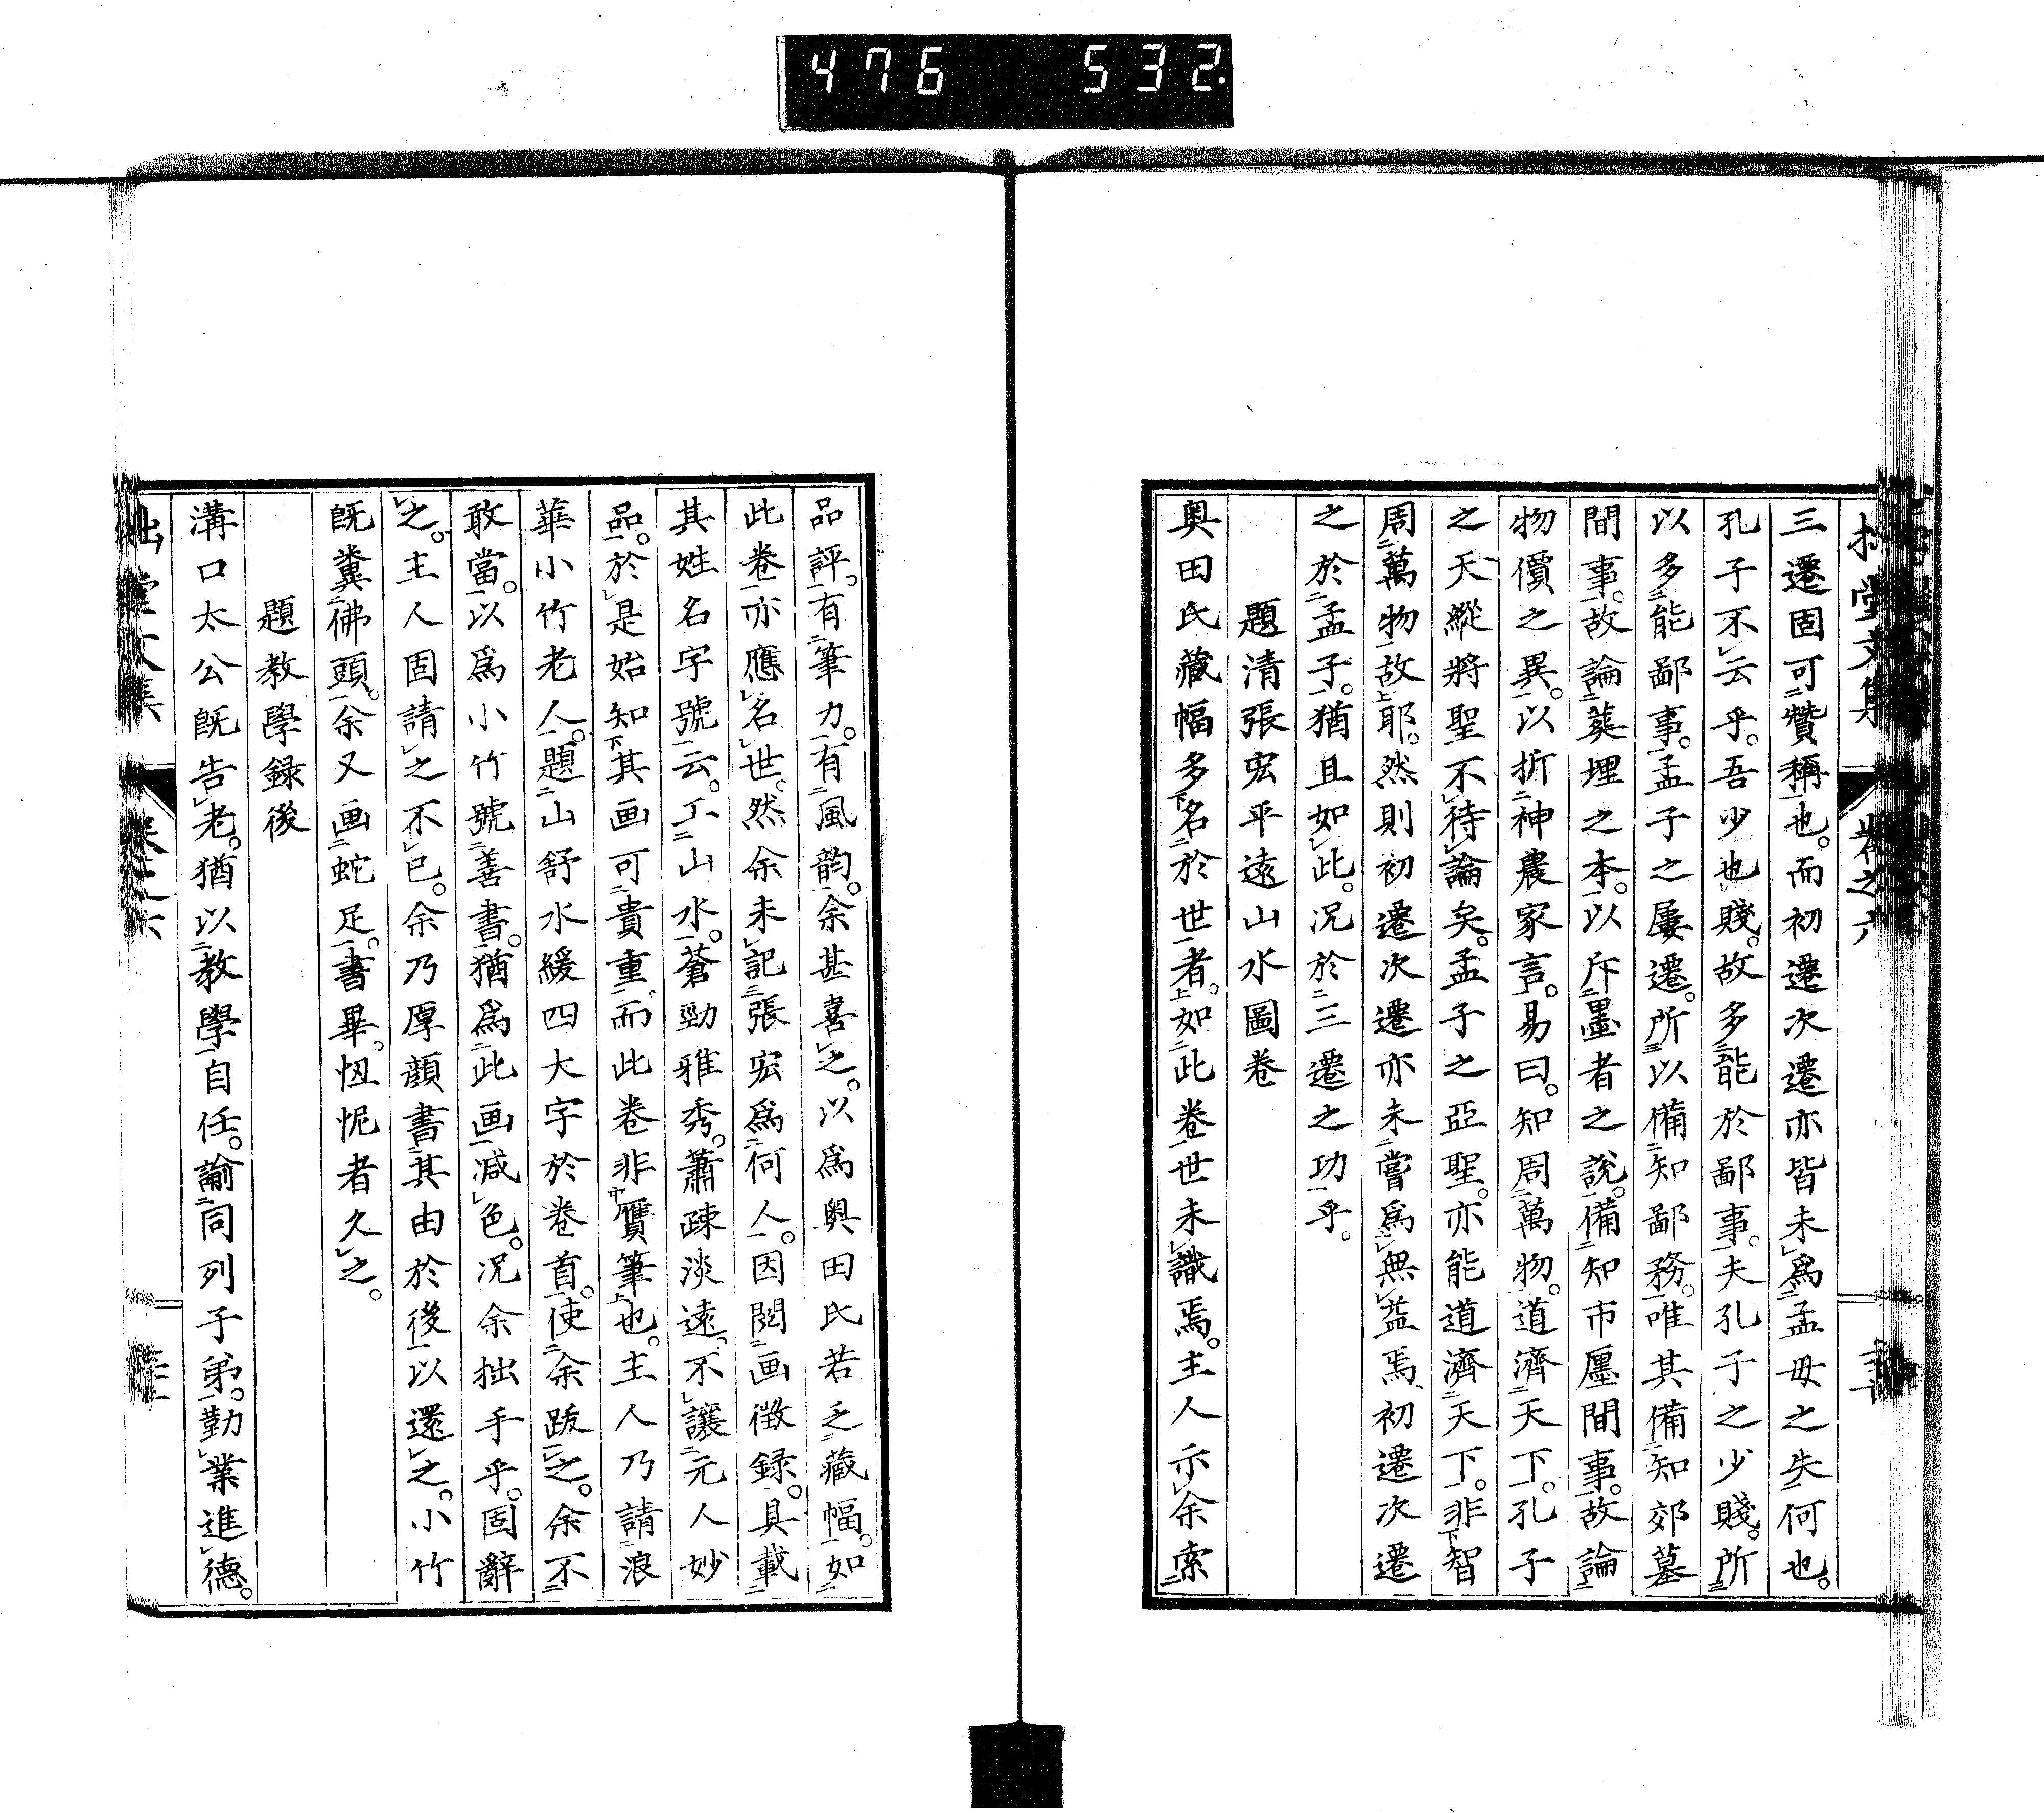 476 532
三遷固可贊稱也。而初遷次遷亦皆未爲孟母之失何也。
孔子不云乎。吾少也賤。故多能於鄙事。夫孔子之少賤。所
以多能鄙事。孟子之屢遷。所以備知鄙務。唯其備知郊墓
間事。故論葬埋之本。以斥墨者之說。備知市廛間事。故論
物價之異。以折神農家言。易曰。知周萬物。道濟天下。孔子
之天縱將聖不待論矣。孟子之亞聖。亦能道濟天下。非智
周萬物故耶。然則初遷次遷亦未嘗爲無益焉。初遷次遷
之於孟子。猶且如此。况於三遷之功乎。
題清張宏平遠山水圖卷
奥田氏藏幅多名於世者。如此卷世未識焉。主人示余索
品評。有筆力。有風韵。余甚喜之。以爲奥田氏若乏藏幅。如
此卷亦應名世。然余未記張宏爲何人。因閲画徴録。具載
其姓名字號云。工山水。蒼勁雅秀。蕭疎淡遠。不讓元人妙
品。於是始知其画可貴重。而此卷非贋筆也。主人乃請浪
華小竹老人。題山舒水緩四大字於卷首。使余跋之。余不
敢當。以爲小竹號善書。猶爲此画减色。况余拙手乎。固辭
之。主人固請之不已。余乃厚顔書其由於後以還之。小竹
既糞佛頭。余又画蛇足。書畢。忸怩者久之。
題教學録後
溝口太公既告老。猶以教學自任。諭同列子弟。勤業進德。
拙堂文集 卷之六